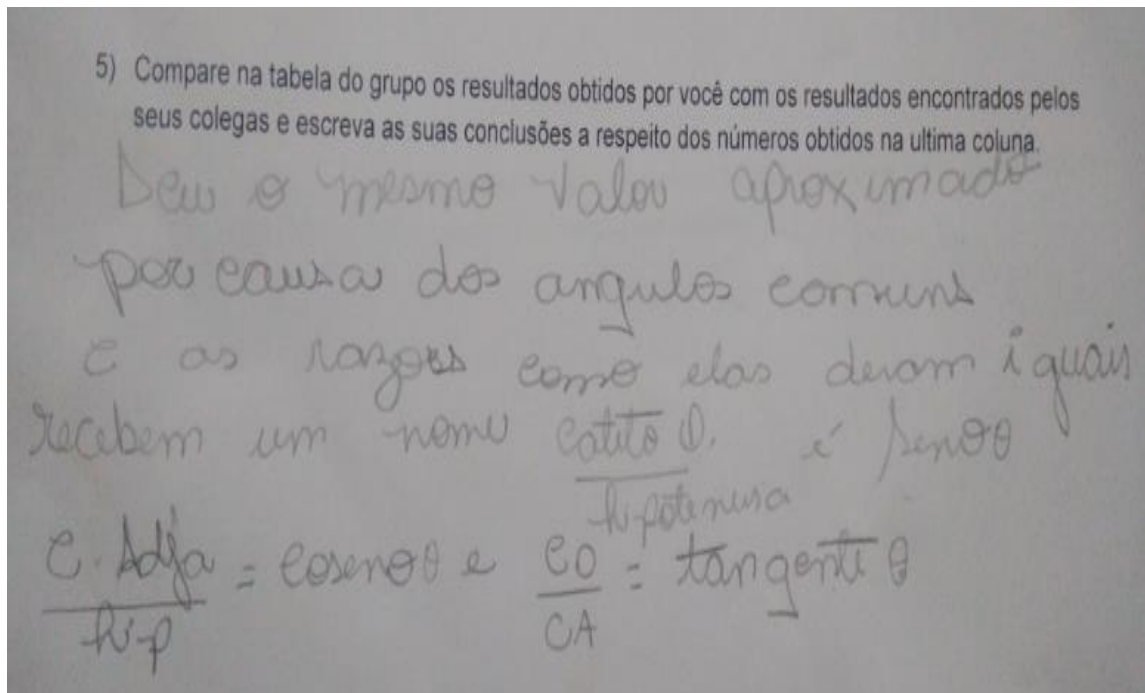 5) Compare na tabela do grupo os resultados obtidos por você com os resultados encontrados pelos
seus colegas e escreva as suas conclusões a respeito dos números obtidos na ultima coluna.
Deu o mesmo valor aproximado
por causa dos angulos comuns
e as razões como elas deram iguais
recebem um nome cateto O. / hipotenusa é seno θ
C. Adja / hip = cosseno θ e CO / CA = tangente θ